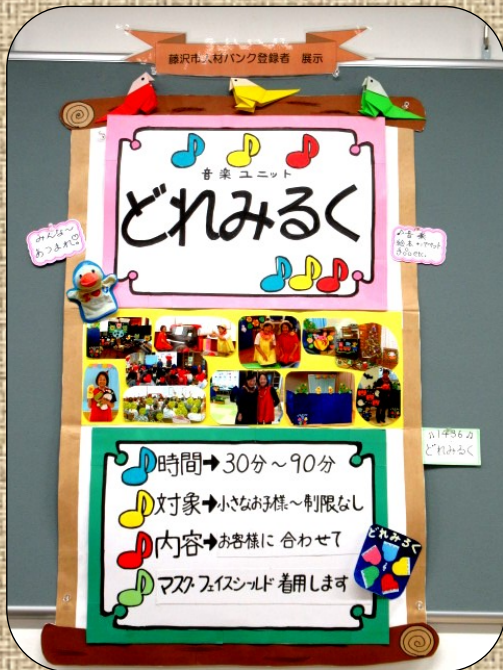 藤沢市人材バンク登録者 展示
音楽ユニット
どれみるく
みんな~
あつまれ
♪音楽
絵本
♫1486♫
どれみるく
時間→30分~90分
対象→小さなお子様~制限なし
内容→お客様に合わせて
マスク・フェイスシールド着用します
どれみるく